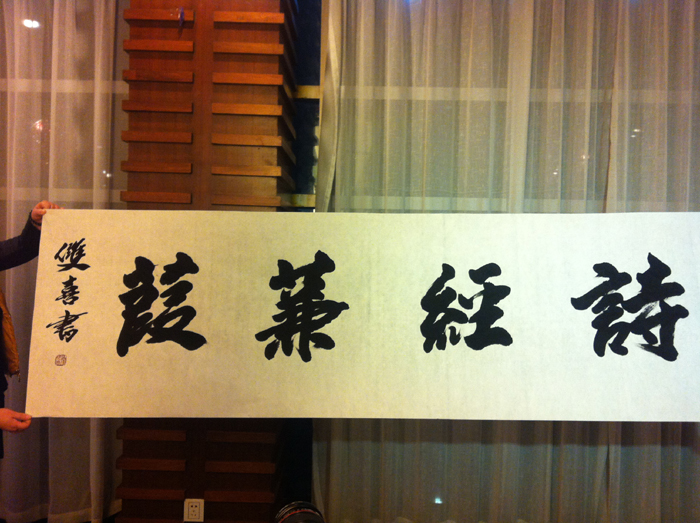 詩經蒹葭
雙喜書